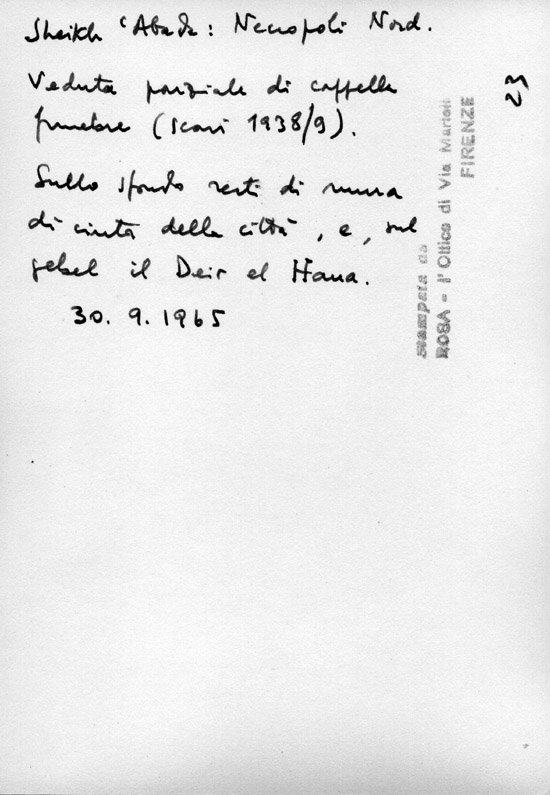 Sheikh 'Abada: Necropoli Nord.
Veduta parziale di cappella
funebre (scavi 1938/9).
Sullo sfondo resti di mura
di cinta della città, e, sul
gebel il Deir el Hawa.
30. 9. 1965
23
Stampata da
ROSA - l'Ottico di Via Martelli
FIRENZE